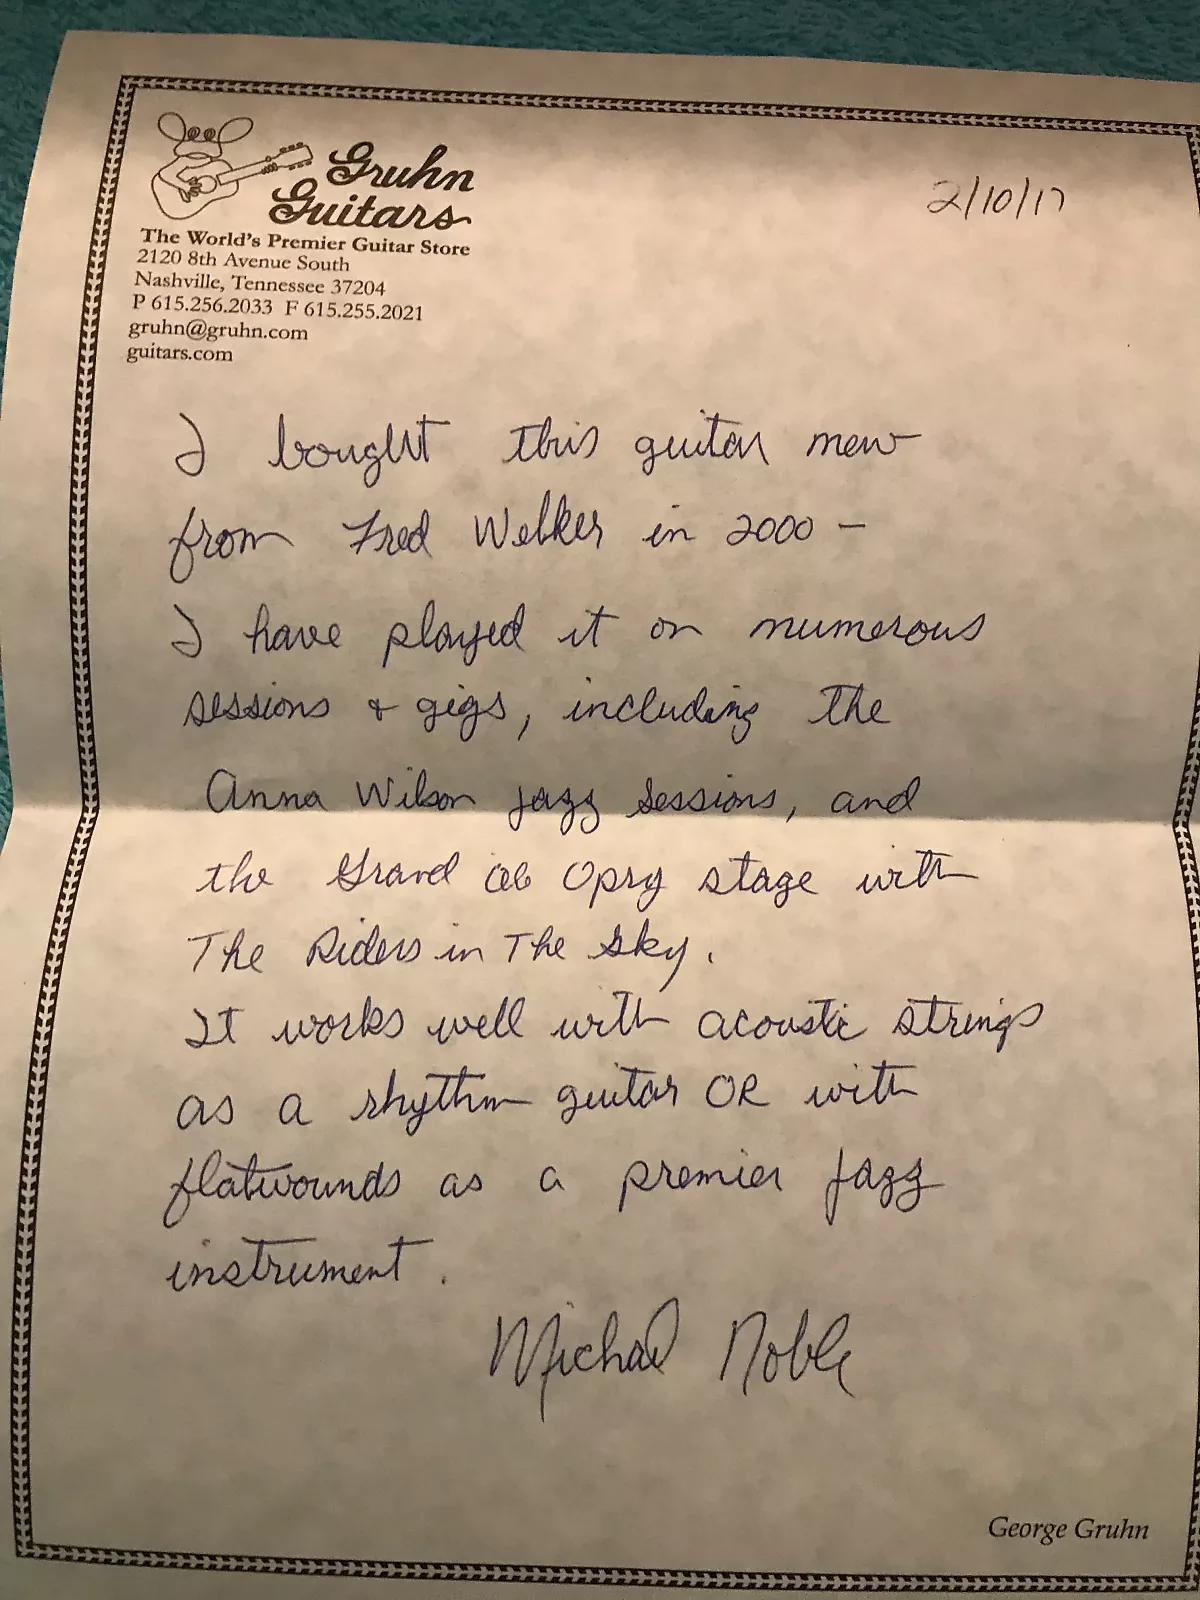 Gruhn
Guitars
The World's Premier Guitar Store
2120 8th Avenue South
Nashville, Tennessee 37204
P 615.256.2033 F 615.255.2021
gruhn@gruhn.com
guitars.com
2/10/17
I bought this guitar new
from Fred Welker in 2000 -
I have played it on numerous
sessions & gigs, including the
Anna Wilson jazz sessions, and
the Grand Ole Opry stage with
The Riders in The Sky.
It works well with acoustic strings
as a rhythm guitar OR with
flatwounds as a premier jazz
instrument.
Michael Noble
George Gruhn